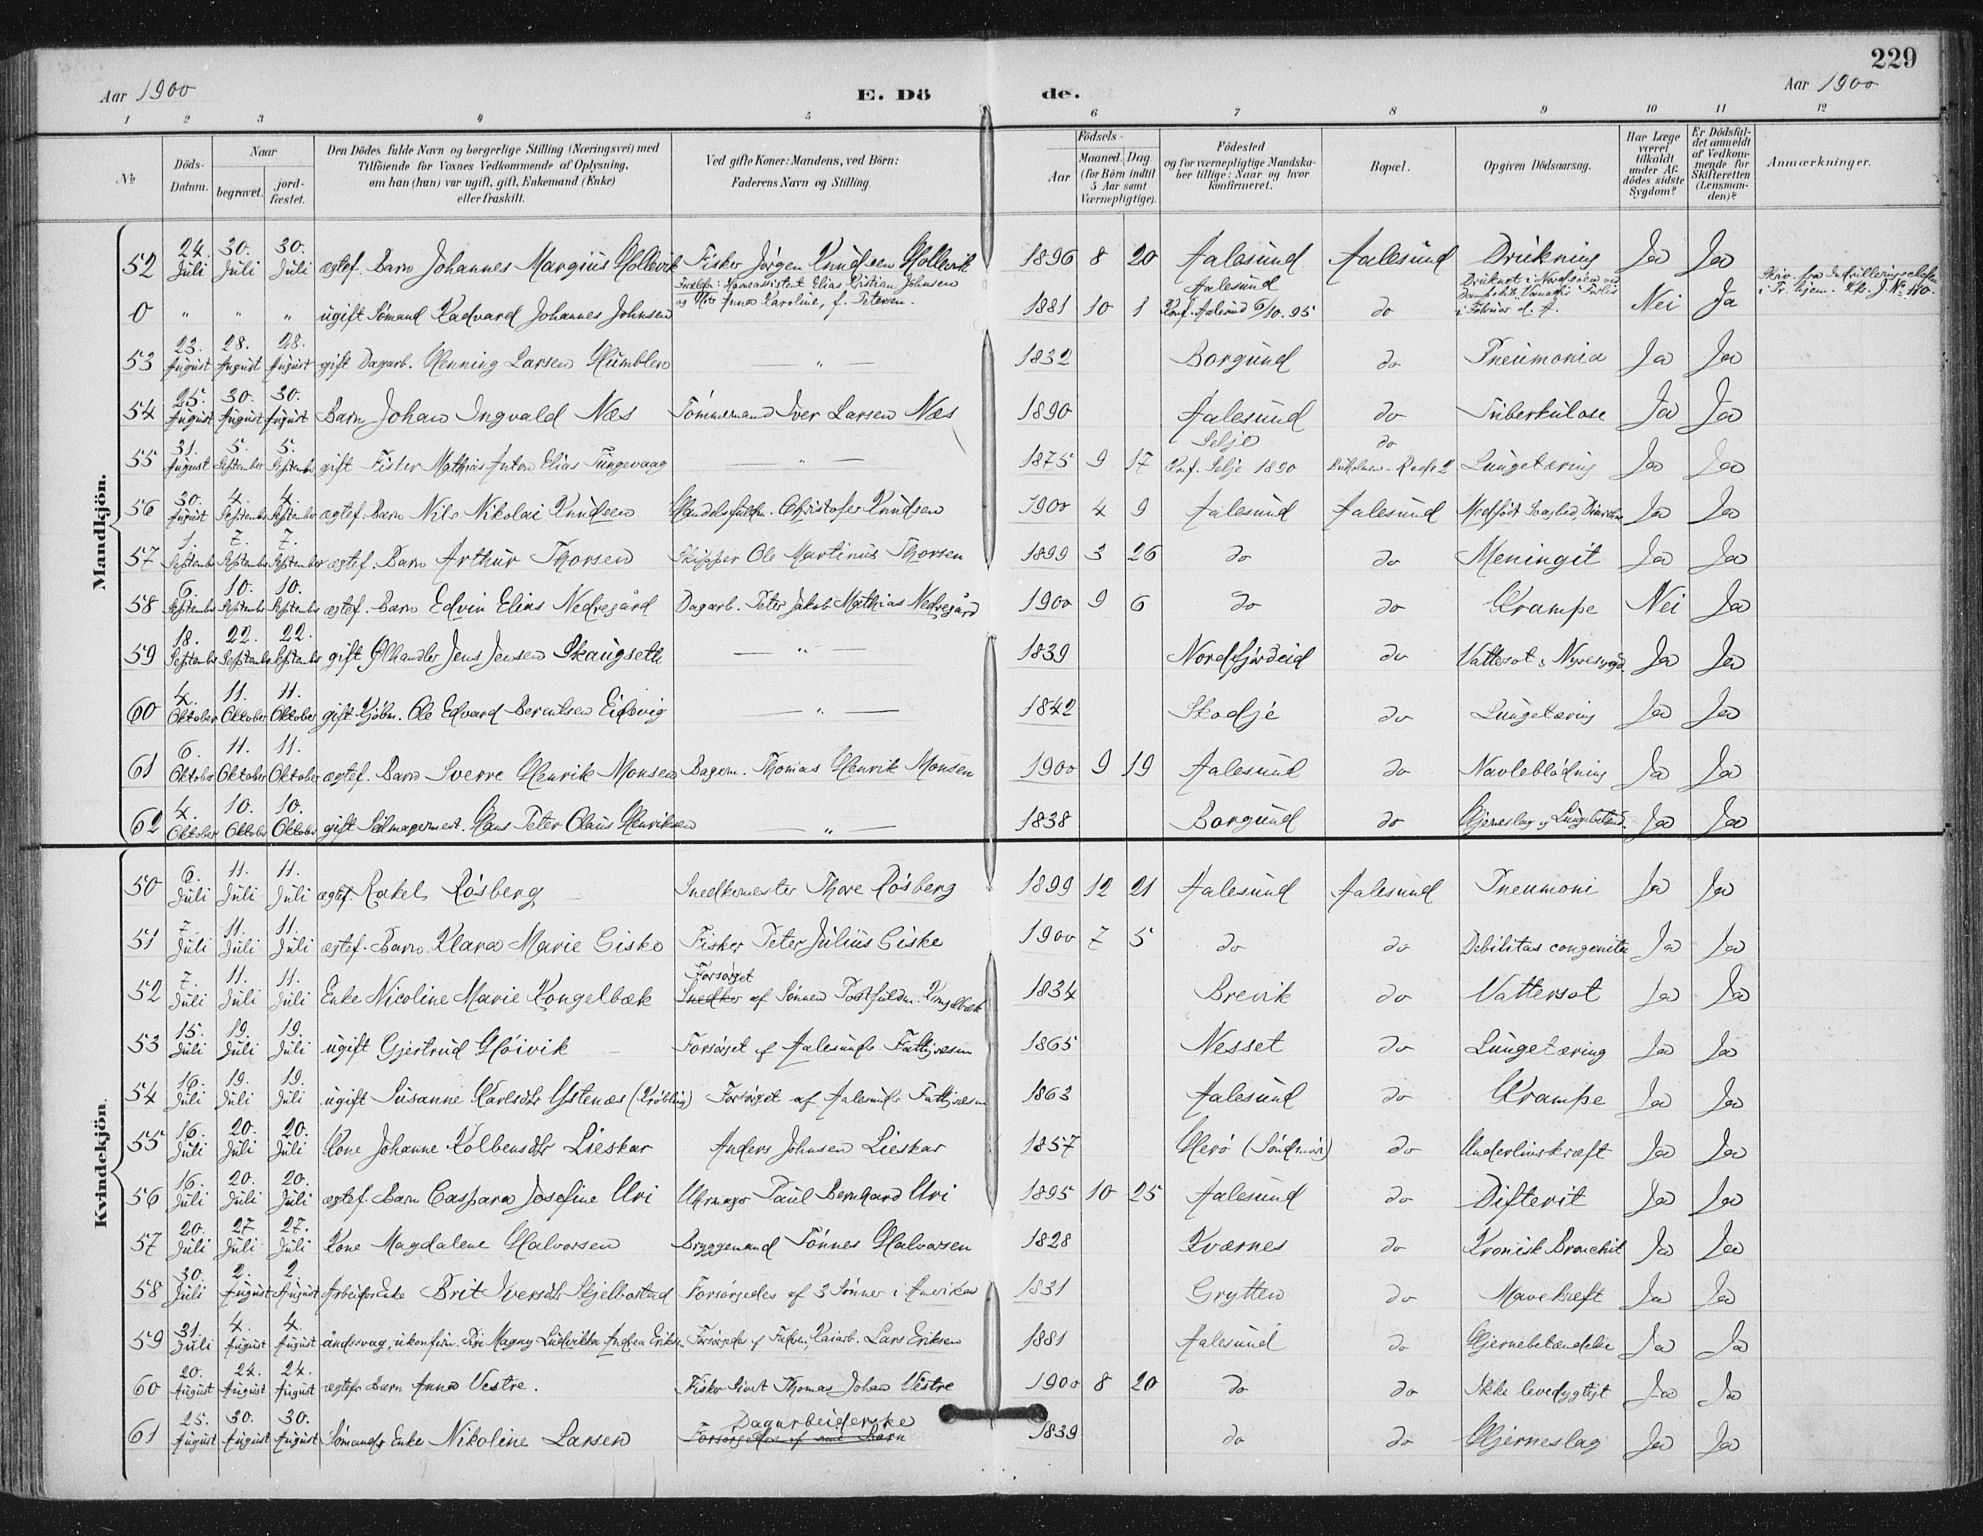 229
Aar 1900 E. Dö de. Aar 1900
1 2 3 4 5 6 7 8 9 10 11 12
№ Döds-Datum. Naar begravet. jord-fæstet. Den Dödes fulde Navn og borgerlige Stilling (Næringsvei) med Tilföiende for Voxnes Vedkommende af Oplysning, om han (hun) var ugift, gift, Enkemand (Enke) eller fraskilt. Ved gifte Koner: Mandens, ved Börn: Faderens Navn og Stilling. Födsels- Aar Maaned. Dag (for Börn indtil 5 Aar samt Værnepligtige). Födested og for værnepligtige Mandskaber tillige: Naar og hvor konfirmeret. Bopæl. Opgiven Dödsaarsag. Har Læge været tilkaldt under Afdödes sidste Sygdom? Er Dödsfaldet anmeldt af Vedkommende for Skifteretten (Lensmanden)? Anmærkninger.
Mandkjön.
52 24. Juli 30. Juli 30. Juli ægtef. Barn Johannes Margius Hollevik Fisker Jørgen Knudsen Hollevik 1896 8 20 Aalesund Aalesund Drukning Ja Ja
0 " " " ugift Sømand Kadvard Johannes Johnsen Forældre: Havneassistent Elias Kristian Johnsen og Mor Anna Karoline, f. Petersen. 1881 10 1 Aalesund Konf. Aalesund 6/10.95 do Druknet i Nordsøen i Februar d. A. Nei Ja
53 23. August 28. August 28. August gift Dagarb. Henning Larsen Humblen — " — 1832 Borgund do Pneumonia Ja Ja
54 25. August 30. August 30. August Barn Johan Ingvald Næs Tømmermand Iver Larsen Næs 1890 Aalesund do Tuberkulose Ja Ja
55 31. August 5. September 5. September gift Fisker Mathias Anton Elias Tungevaag — " — 1875 9 17 Selje Konf. Selje 1890 do Lungetæring Ja Ja
56 30. August 4. September 4. September ægtef. Barn Nils Nikolai Knudsen Handelsfuldm. Christofer Knudsen 1900 4 9 Aalesund Aalesund Medfødt Svaghed, Ja Ja
57 1. September 7. September 7. September ægtef. Barn Arthur Thorsen Skipper Ole Martinus Thorsen 1899 3 26 do do Meningit Ja Ja
58 6. September 10. September 10. September ægtef. Barn Edvin Elias Nedregård Dagarb. Peter Jakob Mathias Nedregård 1900 9 6 do do Krampe Nei Ja
59 18. September 22. September 22. September gift Ølhandler Jens Jensen Skaugseth — " — 1839 Nordfjordeid do Vattersot, Nyresygd. Ja Ja
60 4. Oktober 11. Oktober 11. Oktober gift Kjøbm. Ole Edvard Berentsen Eidsvig — " — 1842 Skodje do Lungetæring Ja Ja
61 6. Oktober 11. Oktober 11. Oktober ægtef. Barn Sverre Henrik Monsen Bagerm. Thomas Henrik Monsen 1900 9 19 Aalesund do Navleblödning Ja Ja
62 4. Oktober 10. Oktober 10. Oktober gift Seilmagermest. Hans Peter Olaus Henriksen — " — 1838 Borgund do Hjerneslag og Lungebetænd. Ja Ja
Kvindekjön.
50 6. Juli 11. Juli 11. Juli ægtef. Rakel Røsberg Snedkermester Thore Røsberg 1899 12 21 Aalesund Aalesund Pneumoni Ja Ja
51 7. Juli 11. Juli 11. Juli ægtef. Barn Klara Marie Giske Fisker Peter Julius Giske 1900 7 5 do do Debilitas congenita Ja Ja
52 7. Juli 11. Juli 11. Juli Enke Nicoline Marie Kongelbæk Forsørget Snedker af Sønnen Postfuldm. Kongelbæk 1834 Brevik do Vattersot Ja Ja
53 15. Juli 19. Juli 19. Juli ugift Gjertrud Høivik Forsørget af Aalesunds Fattigvæsen 1865 Nesset do Lungetæring Ja Ja
54 16. Juli 19. Juli 19. Juli ugift Susanne Karlsdtr Ystenæs (Krøbling) Forsørget af Aalesunds Fattigvæsen 1863 Aalesund do Krampe Ja Ja
55 16. Juli 20. Juli 20. Juli Kone Johanne Kolbensdtr Lieskar Anders Johnsen Lieskar 1857 Herö (Söndmör) do Underlivskræft Ja Ja
56 16. Juli 20. Juli 20. Juli ægtef. Barn Caspara Josefine Uri Uhrmager Paul Bernhard Uri 1895 10 25 Aalesund do Difterit Ja Ja
57 20. Juli 27 Juli 27. Juli Kone Magdalene Halvorsen Bryggemand Tönnes Halvorsen 1828 Kværnes do Kronisk Bronchit Ja Ja
58 30. Juli 2. August 2 August Arbeids Enke Brit Iversdtr Skjelbostad Forsørgedes af 3 Sønner i Amerika 1831 Grytten do Mavekræft Ja Ja
59 31. Juli 4. August 4. August åndssvag, ukonfirm. Pige Magny Ludvikka Andrea Eriksen Forsørgedes af Faderen, Lars Eriksen 1881 Aalesund do Hjernebetændelse Ja Ja
60 20. August 24. August 24. August ægtef. Barn Anna Vestre. Fisker Sivert Thomas Johan Vestre 1900 8 20 do do Ikke levedygtigt Ja Ja
61 25. August 30. August 30. August Sømands Enke Nikoline Larsen Dagarbeiderske Forsørgedes af sine Børn 1839 do do Hjerneslag Ja Ja